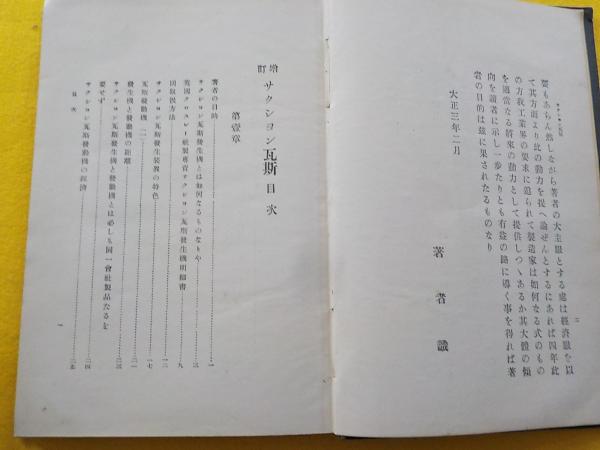 要もあらん然しながら著者の大主眼とする處は經濟眼を以
て其方面より此の動力を捉へ論ぜんとするにあれば四年此
の方我工業界の要求に迫られて製造家は如何なる式のもの
を適當なる將來の動力として提供しつゝあるか其大體の傾
向を讀者に示し一步たりとも有益の路に導く事を得れば著
者の目的は玆に果されたるものなり
大正三年二月
著者識
二
增訂 サクシヨン瓦斯目次
第壹章
著者の目的 一
サクシヨン瓦斯發生機とは如何なるものなりや 三
英國クロスレー社製專賣サクシヨン瓦斯發生機明細書 九
同取扱方法 一二
サクシヨン瓦斯發生裝置の特色 一七
瓦斯發動機(一) 二一
發生機と發動機の距離
サクシヨン瓦斯發生機と發動機とは必しも同一會社製品なるを
要せず 二三
サクシヨン瓦斯發動機の經濟 二四
目次
一